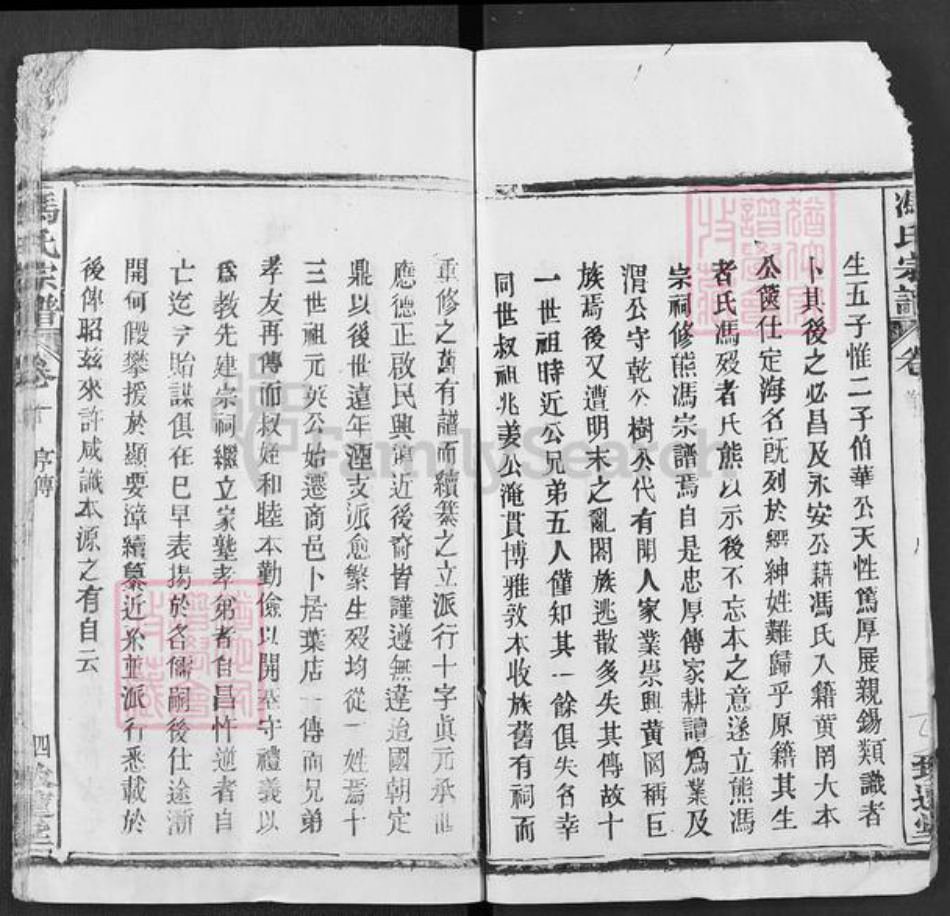 馮氏宗譜
卷
生五子惟二子伯華公天性篤厚展親錫類識者
卜其後之必昌及永安公藉馮氏入籍黄岡大本
公筮仕定海名旣列於縉紳姓難歸乎原籍其生
者氏馮殁者氏熊以示後不忘本之意遂立熊馮
宗祠修熊馮宗譜焉自是忠厚傳家耕讀爲業及
渭公守乾公樹公代有聞人家業崇興黄岡稱巨
族焉後又遭明末之亂閤族逃散多失其傳故十
一世祖時近公兄弟五人僅知其一餘俱失名幸
同世叔祖兆義公淹貫博雅敦本收族舊有祠而
重修之舊有譜而續纂之立派行十字眞元承世
應德正啟民興迨近後裔皆謹遵無違追國朝定
鼎以後世遠年湮支派愈繁生殁均從一姓焉十
三世祖元英公始遷商邑卜居葉店一傳而兄弟
孝友再傳而叔姪和睦本勤儉以開基守禮義以
爲教先建宗祠繼立家塾孝弟者自昌忤逆者自
亡迄今貽謀俱在已早表揚於各儒嗣後仕途漸
開何假攀援於顯要漳續纂近系並派行悉載於
後俾昭玆來許咸識本源之有自云
馮氏宗譜
卷首
序傳
四
FamilySearch